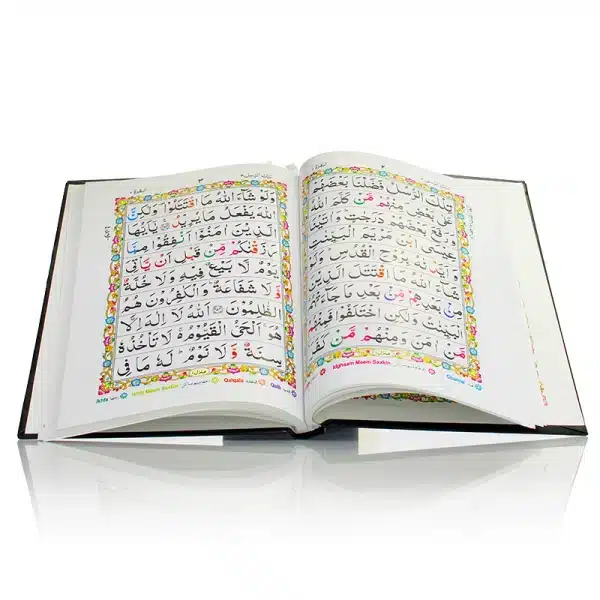 تِلْكَ الرُّسُلُ فَضَّلْنَا بَعْضَهُمْ
عَلٰى بَعْضٍ ۘ مِنْهُمْ مَّنْ كَلَّمَ اللّٰهُ
وَرَفَعَ بَعْضَهُمْ دَرَجٰتٍ ؕ وَاٰتَيْنَا
عِيْسَى ابْنَ مَرْيَمَ الْبَيِّنٰتِ
وَاَيَّدْنٰهُ بِرُوْحِ الْقُدُسِ ؕ وَلَوْ
شَآءَ اللّٰهُ مَا اقْتَتَلَ الَّذِيْنَ
مِنْۢ بَعْدِهِمْ مِّنْۢ بَعْدِ مَا جَآءَتْهُمُ
الْبَيِّنٰتُ وَلٰكِنِ اخْتَلَفُوْا فَمِنْهُمْ
مَّنْ اٰمَنَ وَمِنْهُمْ مَّنْ كَفَرَ ؕ
Idghaam Meem Saakin
تلك الرسل ٣ ٣ البقرة ٢
وَلَوْ شَآءَ اللّٰهُ مَا اقْتَتَلُوْا ۫ وَلٰكِنَّ
اللّٰهَ يَفْعَلُ مَا يُرِيْدُ ۝ يٰۤاَيُّهَا
الَّذِيْنَ اٰمَنُوْۤا اَنْفِقُوْا مِمَّا
رَزَقْنٰكُمْ مِّنْ قَبْلِ اَنْ يَّاْتِيَ
يَوْمٌ لَّا بَيْعٌ فِيْهِ وَلَا خُلَّةٌ
وَّلَا شَفَاعَةٌ ؕ وَالْكٰفِرُوْنَ هُمُ
الظّٰلِمُوْنَ ۝ اَللّٰهُ لَاۤ اِلٰهَ اِلَّا
هُوَ ۚ الْحَيُّ الْقَيُّوْمُ ۚ لَا تَاْخُذُهٗ
سِنَةٌ وَّلَا نَوْمٌ ؕ لَهٗ مَا فِى
Ikhfa Ikhfa Meem Saakin Qalqala Qalb